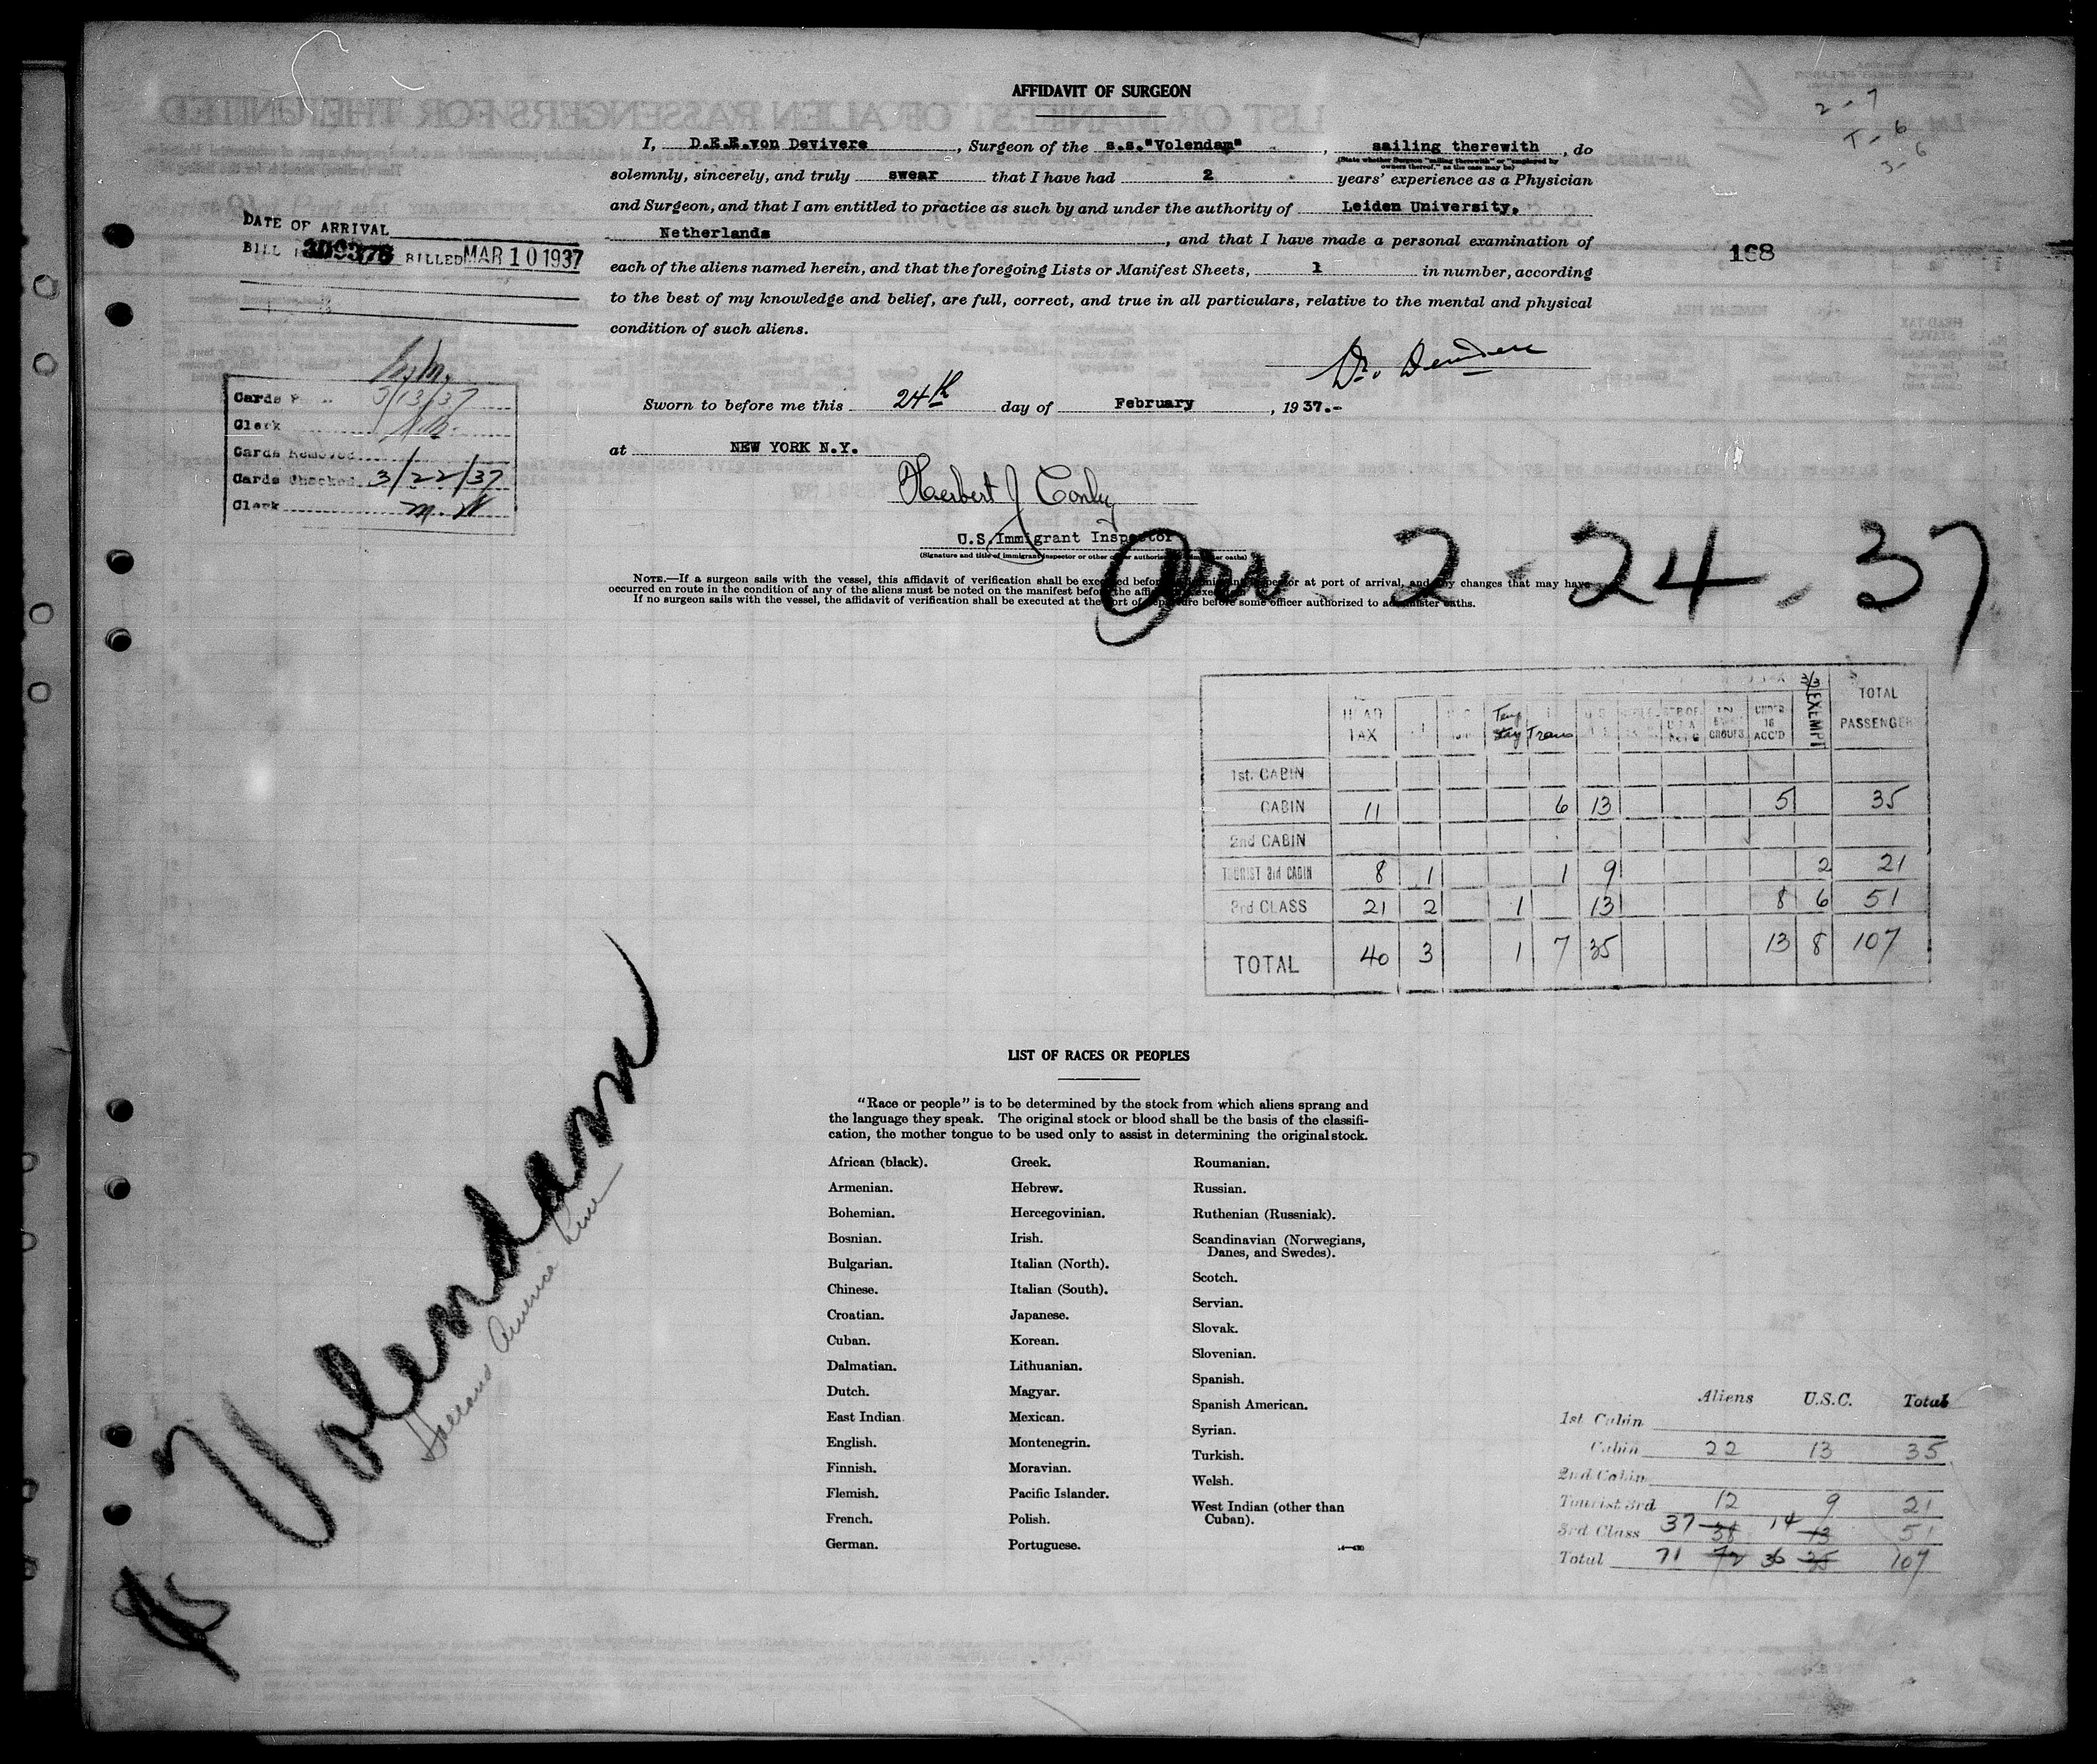 2-7
T-6
3-6
AFFIDAVIT OF SURGEON
I, D.E.E.von Devivere, Surgeon of the s.s."Volendam", sailing therewith, do
(State whether Surgeon "sailing therewith" or "employed by
owners thereof," as the case may be)
solemnly, sincerely, and truly swear that I have had 2 years' experience as a Physician
and Surgeon, and that I am entitled to practice as such by and under the authority of Leiden University,
Netherlands, and that I have made a personal examination of
each of the aliens named herein, and that the foregoing Lists or Manifest Sheets, 1 in number, according
to the best of my knowledge and belief, are full, correct, and true in all particulars, relative to the mental and physical
condition of such aliens.
Dr. Devivere
Sworn to before me this 24th day of February, 1937.-
at NEW YORK N.Y.
Herbert J Conly
U.S.Immigrant Inspector
(Signature and title of immigrant inspector or other officer authorized to administer oaths)
DATE OF ARRIVAL
BILL 309376 BILLED MAR 10 1937
168
Cards 3/13/37
Clerk
Cards Removed
Cards Checked 3/22/37
Clerk M. W
Arr 2-24-37
NOTE.—If a surgeon sails with the vessel, this affidavit of verification shall be executed before immigrant inspector at port of arrival, and any changes that may have
occurred en route in the condition of any of the aliens must be noted on the manifest before the affidavit is executed.
If no surgeon sails with the vessel, the affidavit of verification shall be executed at the port of departure before some officer authorized to administer oaths.
HEAD TAX Temp Stay Trans UNDER 16 ACC'D EXEMPT TOTAL PASSENGERS
1st. CABIN
CABIN 11 6 13 5 35
2nd CABIN
TOURIST 3rd CABIN 8 1 1 9 2 21
3rd CLASS 21 2 1 13 8 6 51
TOTAL 40 3 1 7 35 13 8 107
Volendam
Holland America Line
LIST OF RACES OR PEOPLES
"Race or people" is to be determined by the stock from which aliens sprang and
the language they speak. The original stock or blood shall be the basis of the classifi-
cation, the mother tongue to be used only to assist in determining the original stock.
African (black).
Armenian.
Bohemian.
Bosnian.
Bulgarian.
Chinese.
Croatian.
Cuban.
Dalmatian.
Dutch.
East Indian.
English.
Finnish.
Flemish.
French.
German.
Greek.
Hebrew.
Hercegovinian.
Irish.
Italian (North).
Italian (South).
Japanese.
Korean.
Lithuanian.
Magyar.
Mexican.
Montenegrin.
Moravian.
Pacific Islander.
Polish.
Portuguese.
Roumanian.
Russian.
Ruthenian (Russniak).
Scandinavian (Norwegians,
Danes, and Swedes).
Scotch.
Servian.
Slovak.
Slovenian.
Spanish.
Spanish American.
Syrian.
Turkish.
Welsh.
West Indian (other than
Cuban).
Aliens U.S.C. Total
1st Cabin
Cabin 22 13 35
2nd Cabin
Tourist 3rd 12 9 21
3rd Class 37 38 14 13 51
Total 71 72 36 35 107